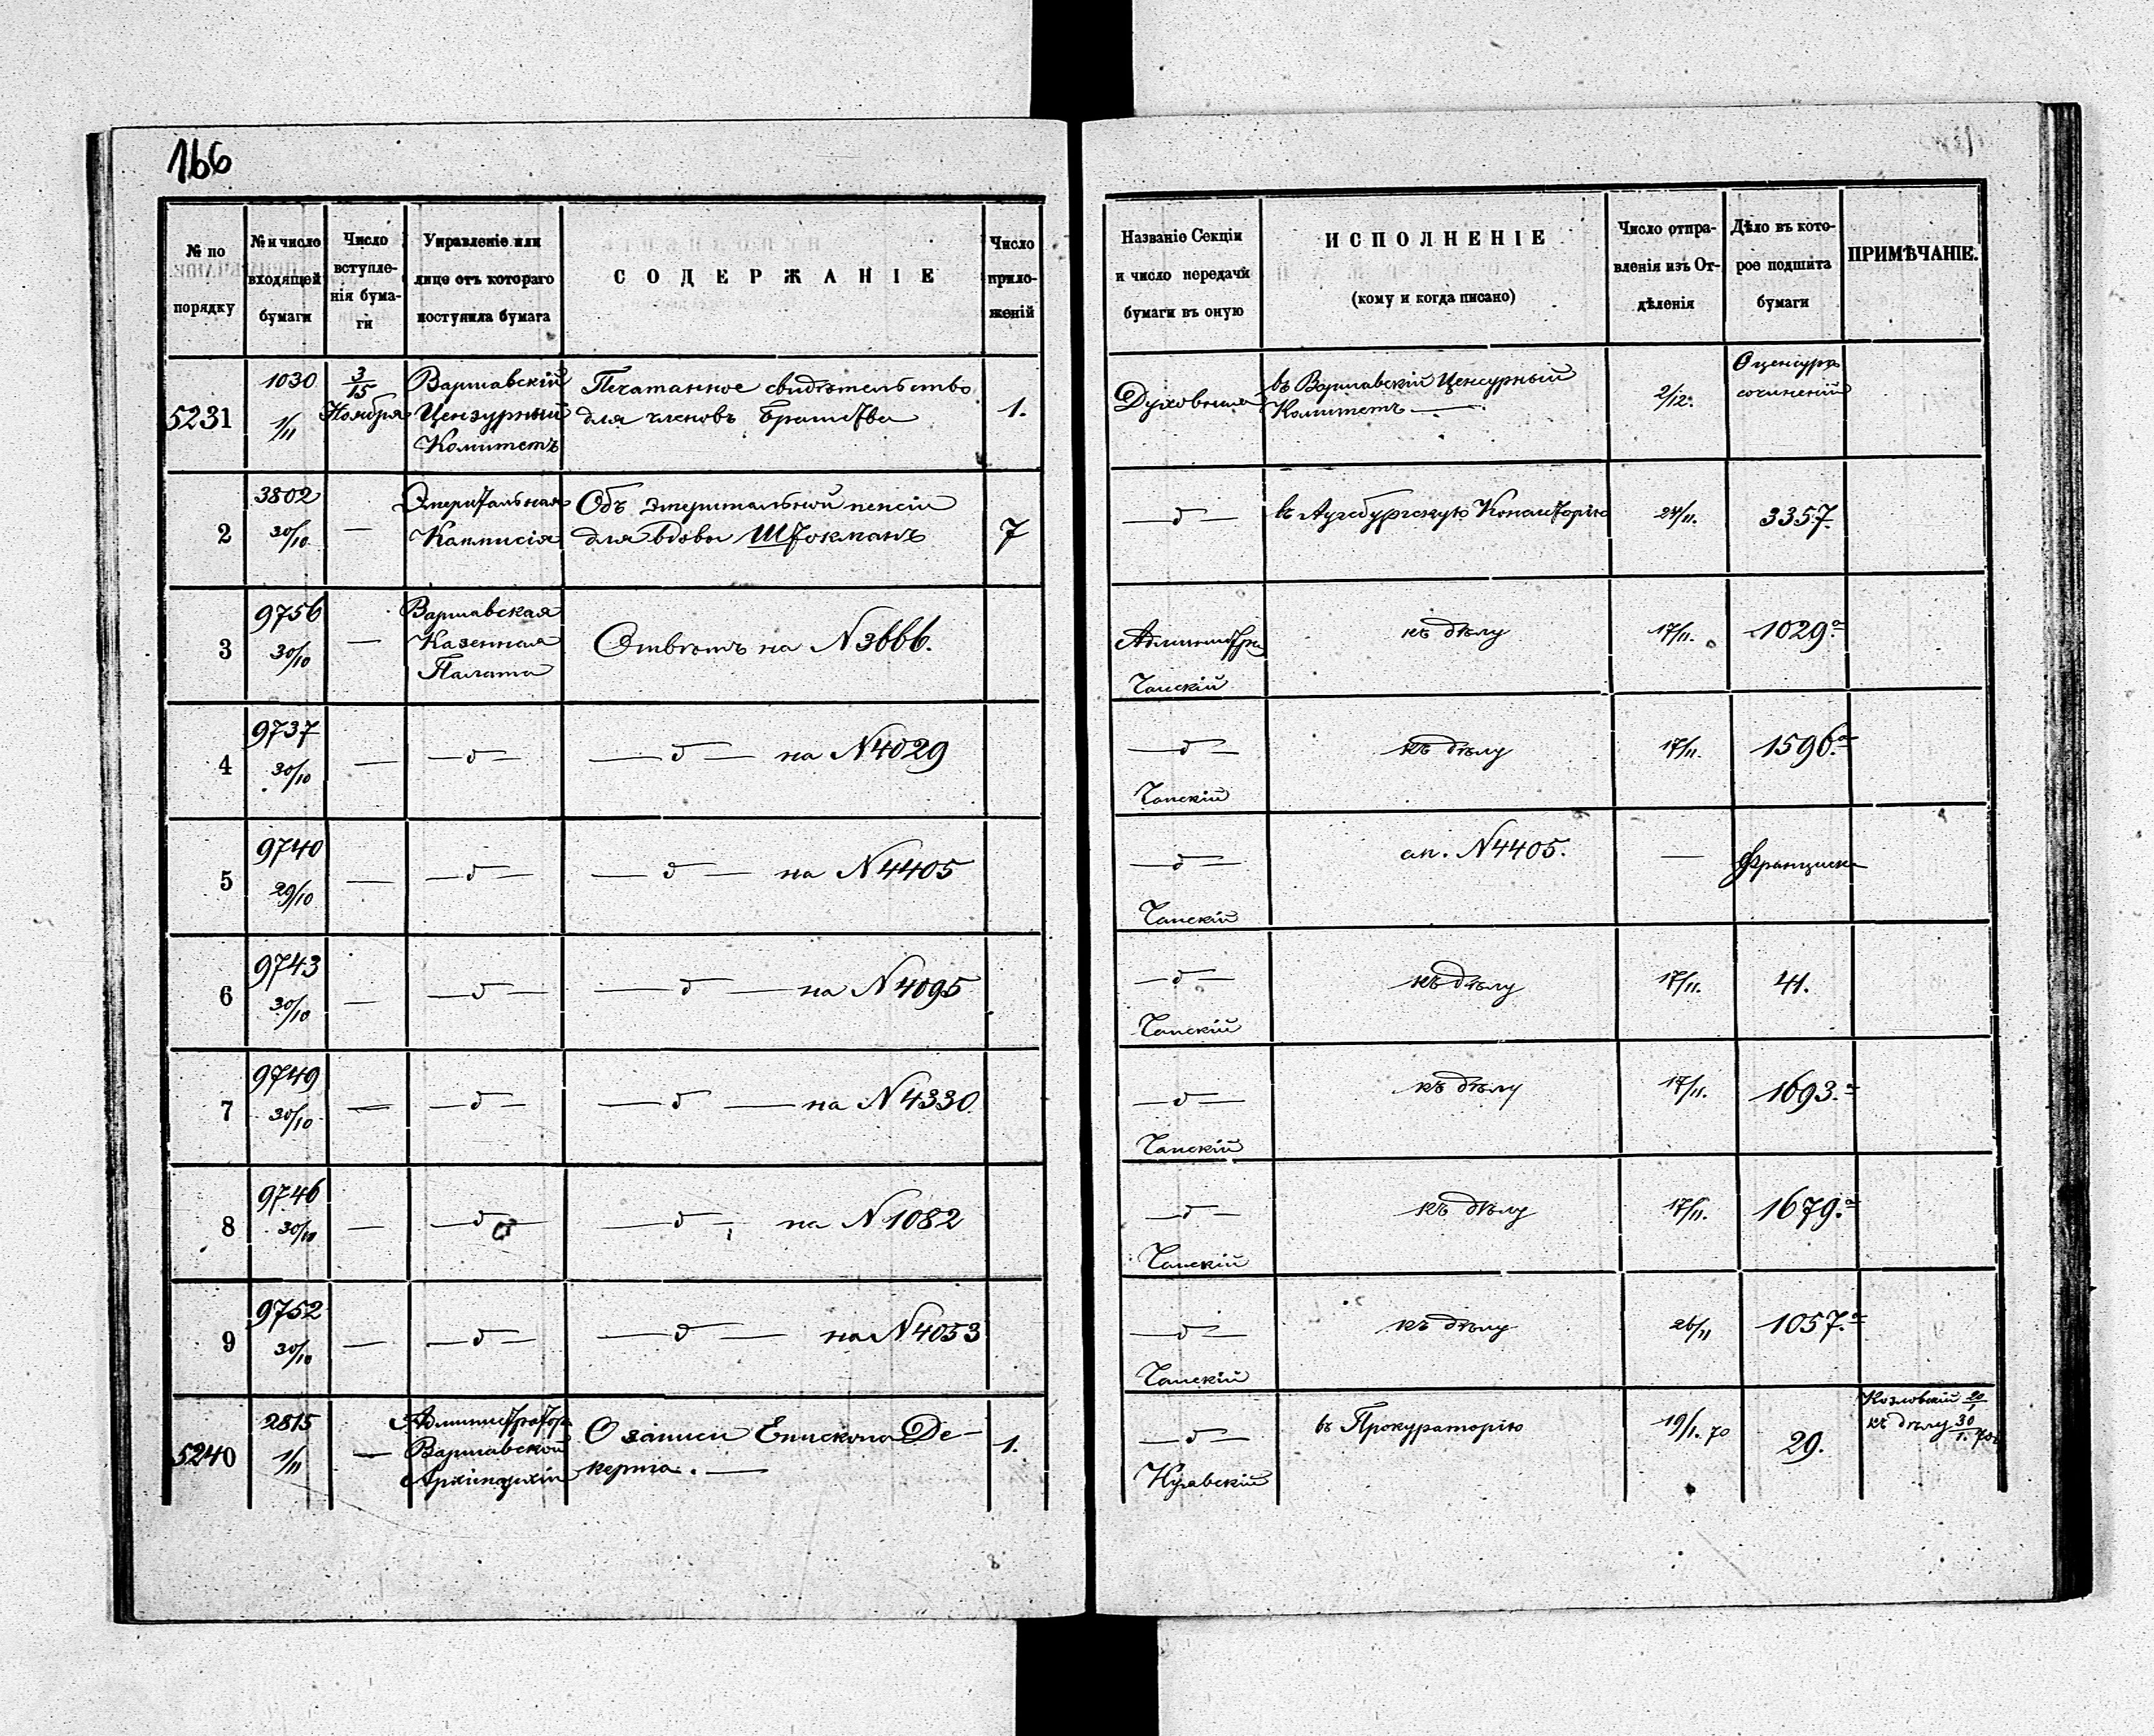 166
№ по
порядку
№ и число
входящей
бумаги
Число
вступле-
нія бума-
ги
Управленіе или
лице отъ котораго
поступила бумага
СОДЕРЖАНІЕ
Число
прило-
женій
Названіе Секціи
и число передачи
бумаги въ оную
ИСПОЛНЕНІЕ
(кому и когда писано)
Число отпра-
вленія изъ От-
дѣленія
Дѣло въ кото-
рое подшита
бумаги
ПРИМѢЧАНІЕ.
5231
1030
1/11
3/15
Ноября
Варшавскій
Цензурный
Комитетъ
Печатанное свидѣтельство
для членовъ Братства
1.
Духовная
въ Варшавскій Ценсурный
Комитетъ —
2/12.
О цензурѣ
сочиненій
2
3802
30/10
—
Эмеритальная
Коммисія
Объ эмеритальной пенсіи
для вдовы Штокманъ
7
— д —
въ Аугсбургскую Консисторію
24/11.
3357.
3
9756
30/10
—
Варшавская
Казенная
Палата
Отвѣтъ на N 3666.
Администра
Чапскій
къ дѣлу
17/11.
1029.а
4
9737
30/10
—
— д —
— д — на N 4029
— д —
Чапскій
къ дѣлу
17/11.
1596.а
5
9740
29/10
—
— д —
— д — на N 4405
— д —
Чапскій
ап. N 4405.
—
Францискъ
6
9743
30/10
—
— д —
— д — на N 4095
— д —
Чапскій
къ дѣлу
17/11.
41.
7
9749
30/10
—
— д —
— д — на N 4330
— д —
Чапскій
къ дѣлу
17/11.
1693.а
8
9746
30/10
—
— д —
— д — на N 1082
— д —
Чапскій
къ дѣлу
17/11.
1679.а
9
9752
30/10
—
— д —
— д — на N 4053
— д —
Чапскій
къ дѣлу
26/11
1057.а
5240
2815
1/11
—
Администраторъ
Варшавской
Архіепархіи
О записи Епископа Де-
керта. —
1.
— д —
Куявскій
въ Прокураторію
19/1. 70
29.
Козловскій
къ дѣлу 30/1. 70